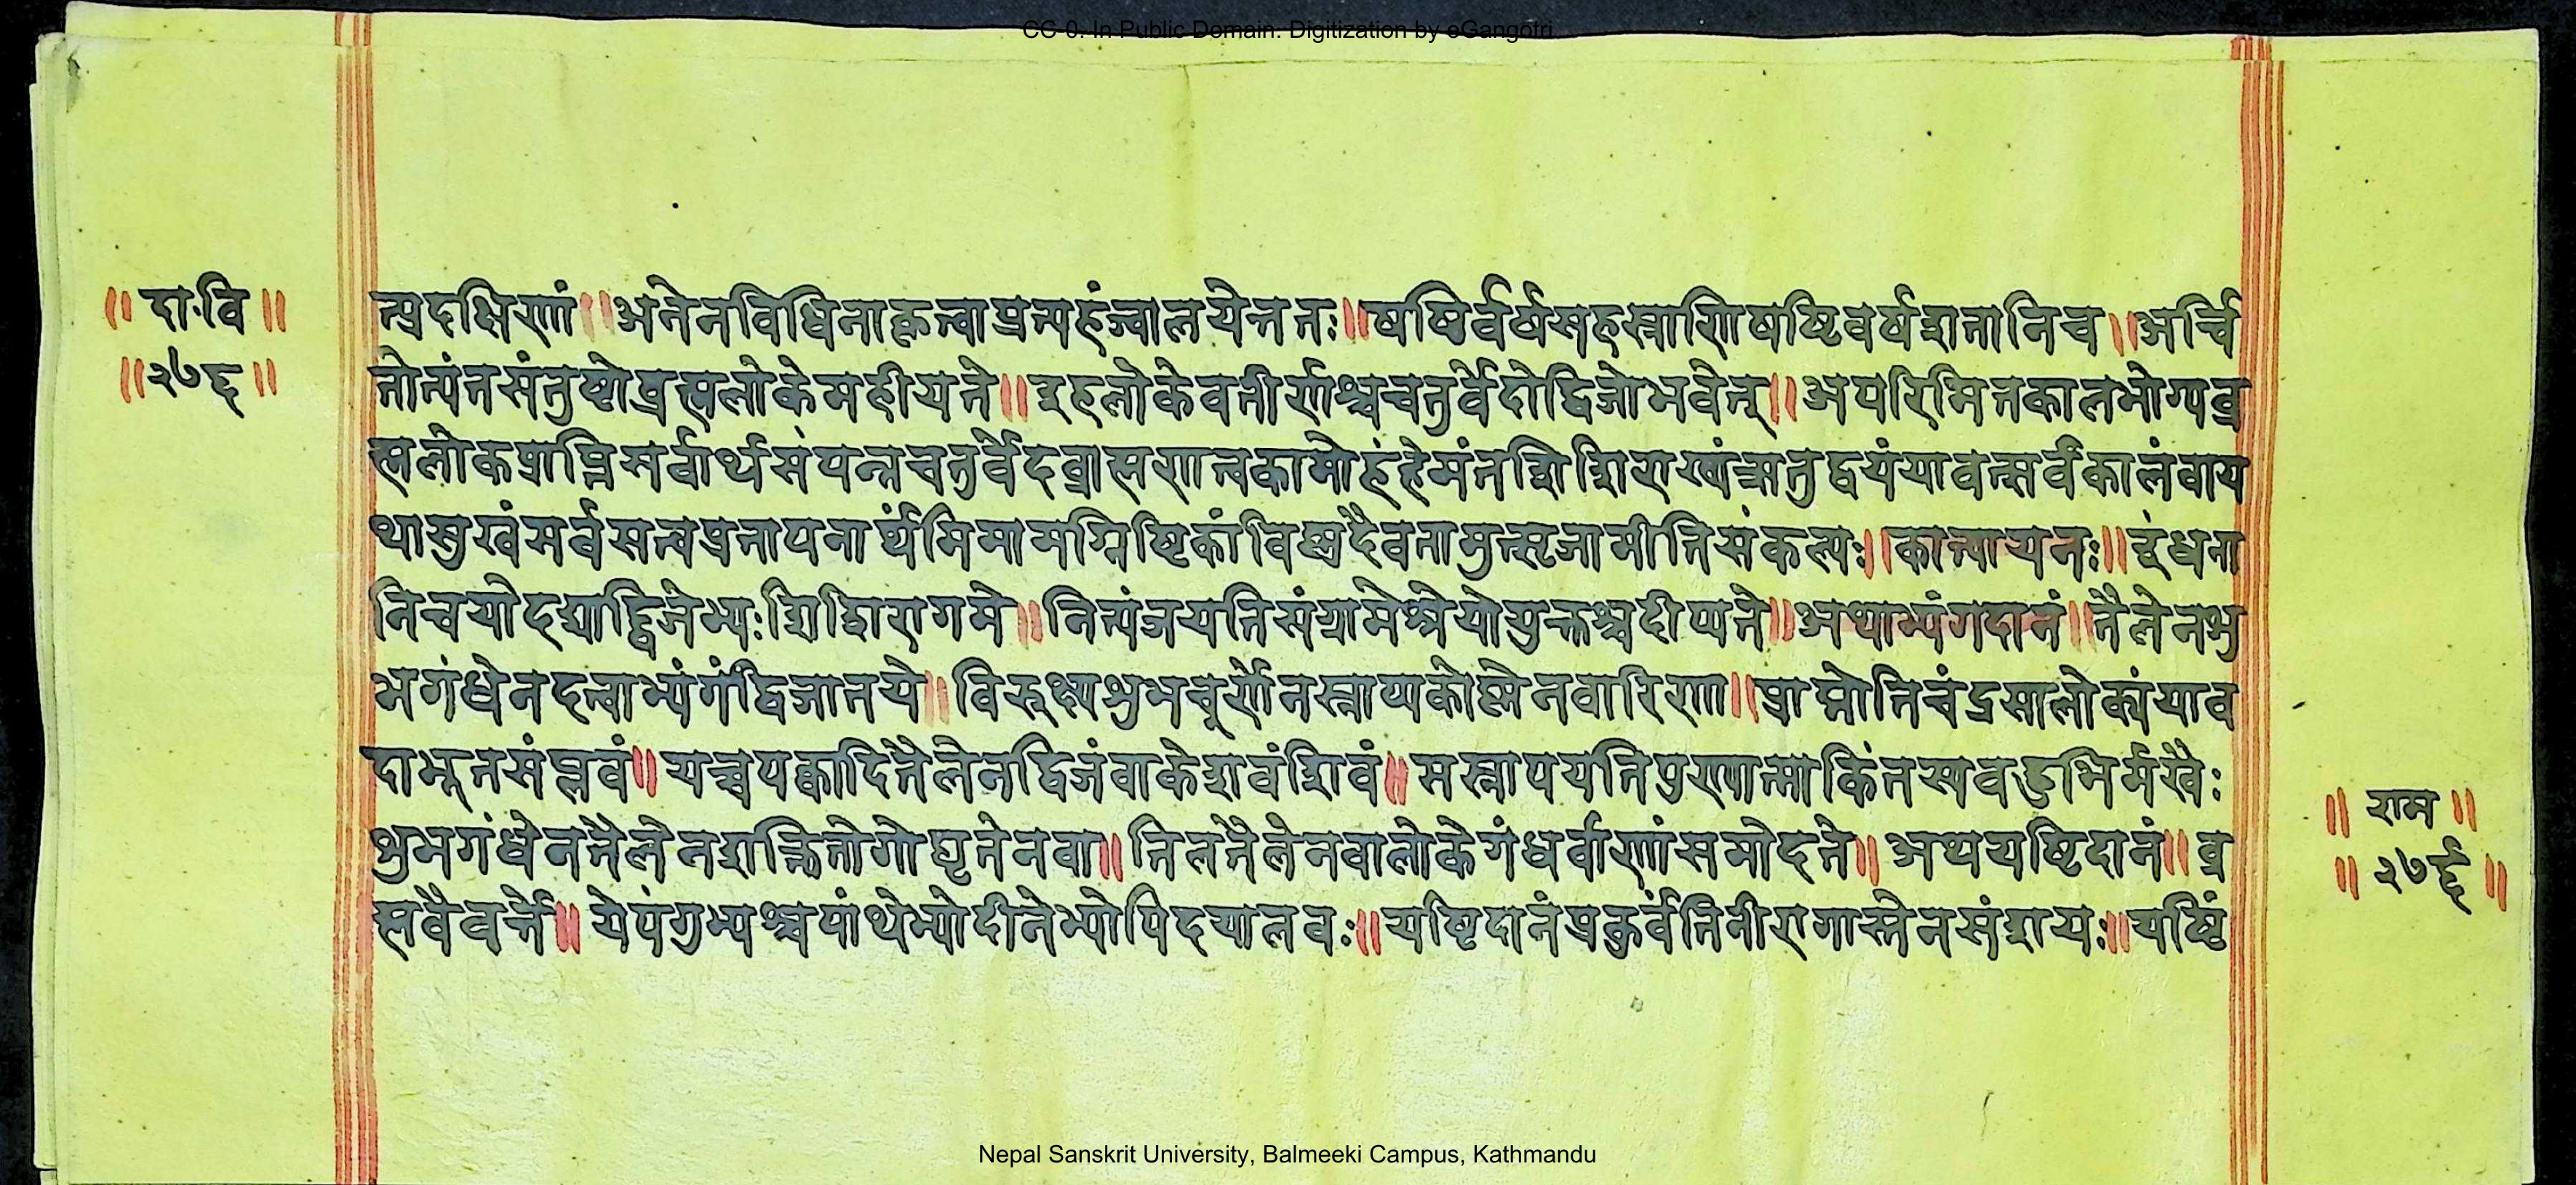 CC-0. In Public Domain. Digitization by eGangotri
॥ दाःवि ॥
॥ २७६ ॥
त्प्रदक्षिणां ॥ अनेनविधिनाकृत्वाप्रत्यहंज्वालयेत्ततः ॥ षष्ठिर्वर्षसहस्राणिषष्टिवर्षशतानिच ॥ अर्चि
तोत्यंतसंतुष्टोब्रह्मलोकेमहीयते ॥ इहलोकेवतीर्णश्चचतुर्वेदोद्विजोभवेत् ॥ अपरिमितकालभोग्यब्र
ह्मलोकप्राप्तिसर्वार्थसंपन्नचतुर्वेदब्राह्मणत्वकामोहंहेमंतशिशिराख्यंऋतुद्वयंयावत्सर्वकालंवाय
थासुखंसर्वसत्वप्रतापनार्थमिमामग्निष्टिकांविष्णुदैवतामुत्सृजामीतिसंकल्पः ॥ कात्यायनः ॥ इंधना
निचयोदद्याद्द्विजेभ्यःशिशिरागमे ॥ नित्यंजयतिसंग्रामेश्रेयोयुक्तश्चदीप्यते ॥ अथाभ्यंगदानं ॥ तैलेनशु
भगंधेनदत्वाभ्यंगंद्विजातये ॥ विरूक्ष्यशुभचूर्णेनस्नाप्यकोष्णेनवारिणा ॥ प्राप्नोतिचंद्रसालोक्यंयाव
दाभूतसंप्लवं ॥ यश्चपक्वादितैलेनद्विजंवाकेशवंशिवं ॥ सस्नापयतिपुण्यात्माकिंतस्यवहुभिर्मखैः
शुभगंधेनतैलेनशक्तितोगोघृतेनवा ॥ तिलतैलेनवालोकेगंधर्वाणांसमोदते ॥ अथयष्टिदानं ॥ ब्र
ह्मवैवर्त्ते ॥ येपंगुभ्यश्चपांथेभ्योदीनेभ्योपिदयालवः ॥ यष्टिदानंप्रकुर्वंतिनीरागास्तेनसंशयः ॥ यष्टिं
॥ राम ॥
॥ २७६ ॥
Nepal Sanskrit University, Balmeeki Campus, Kathmandu